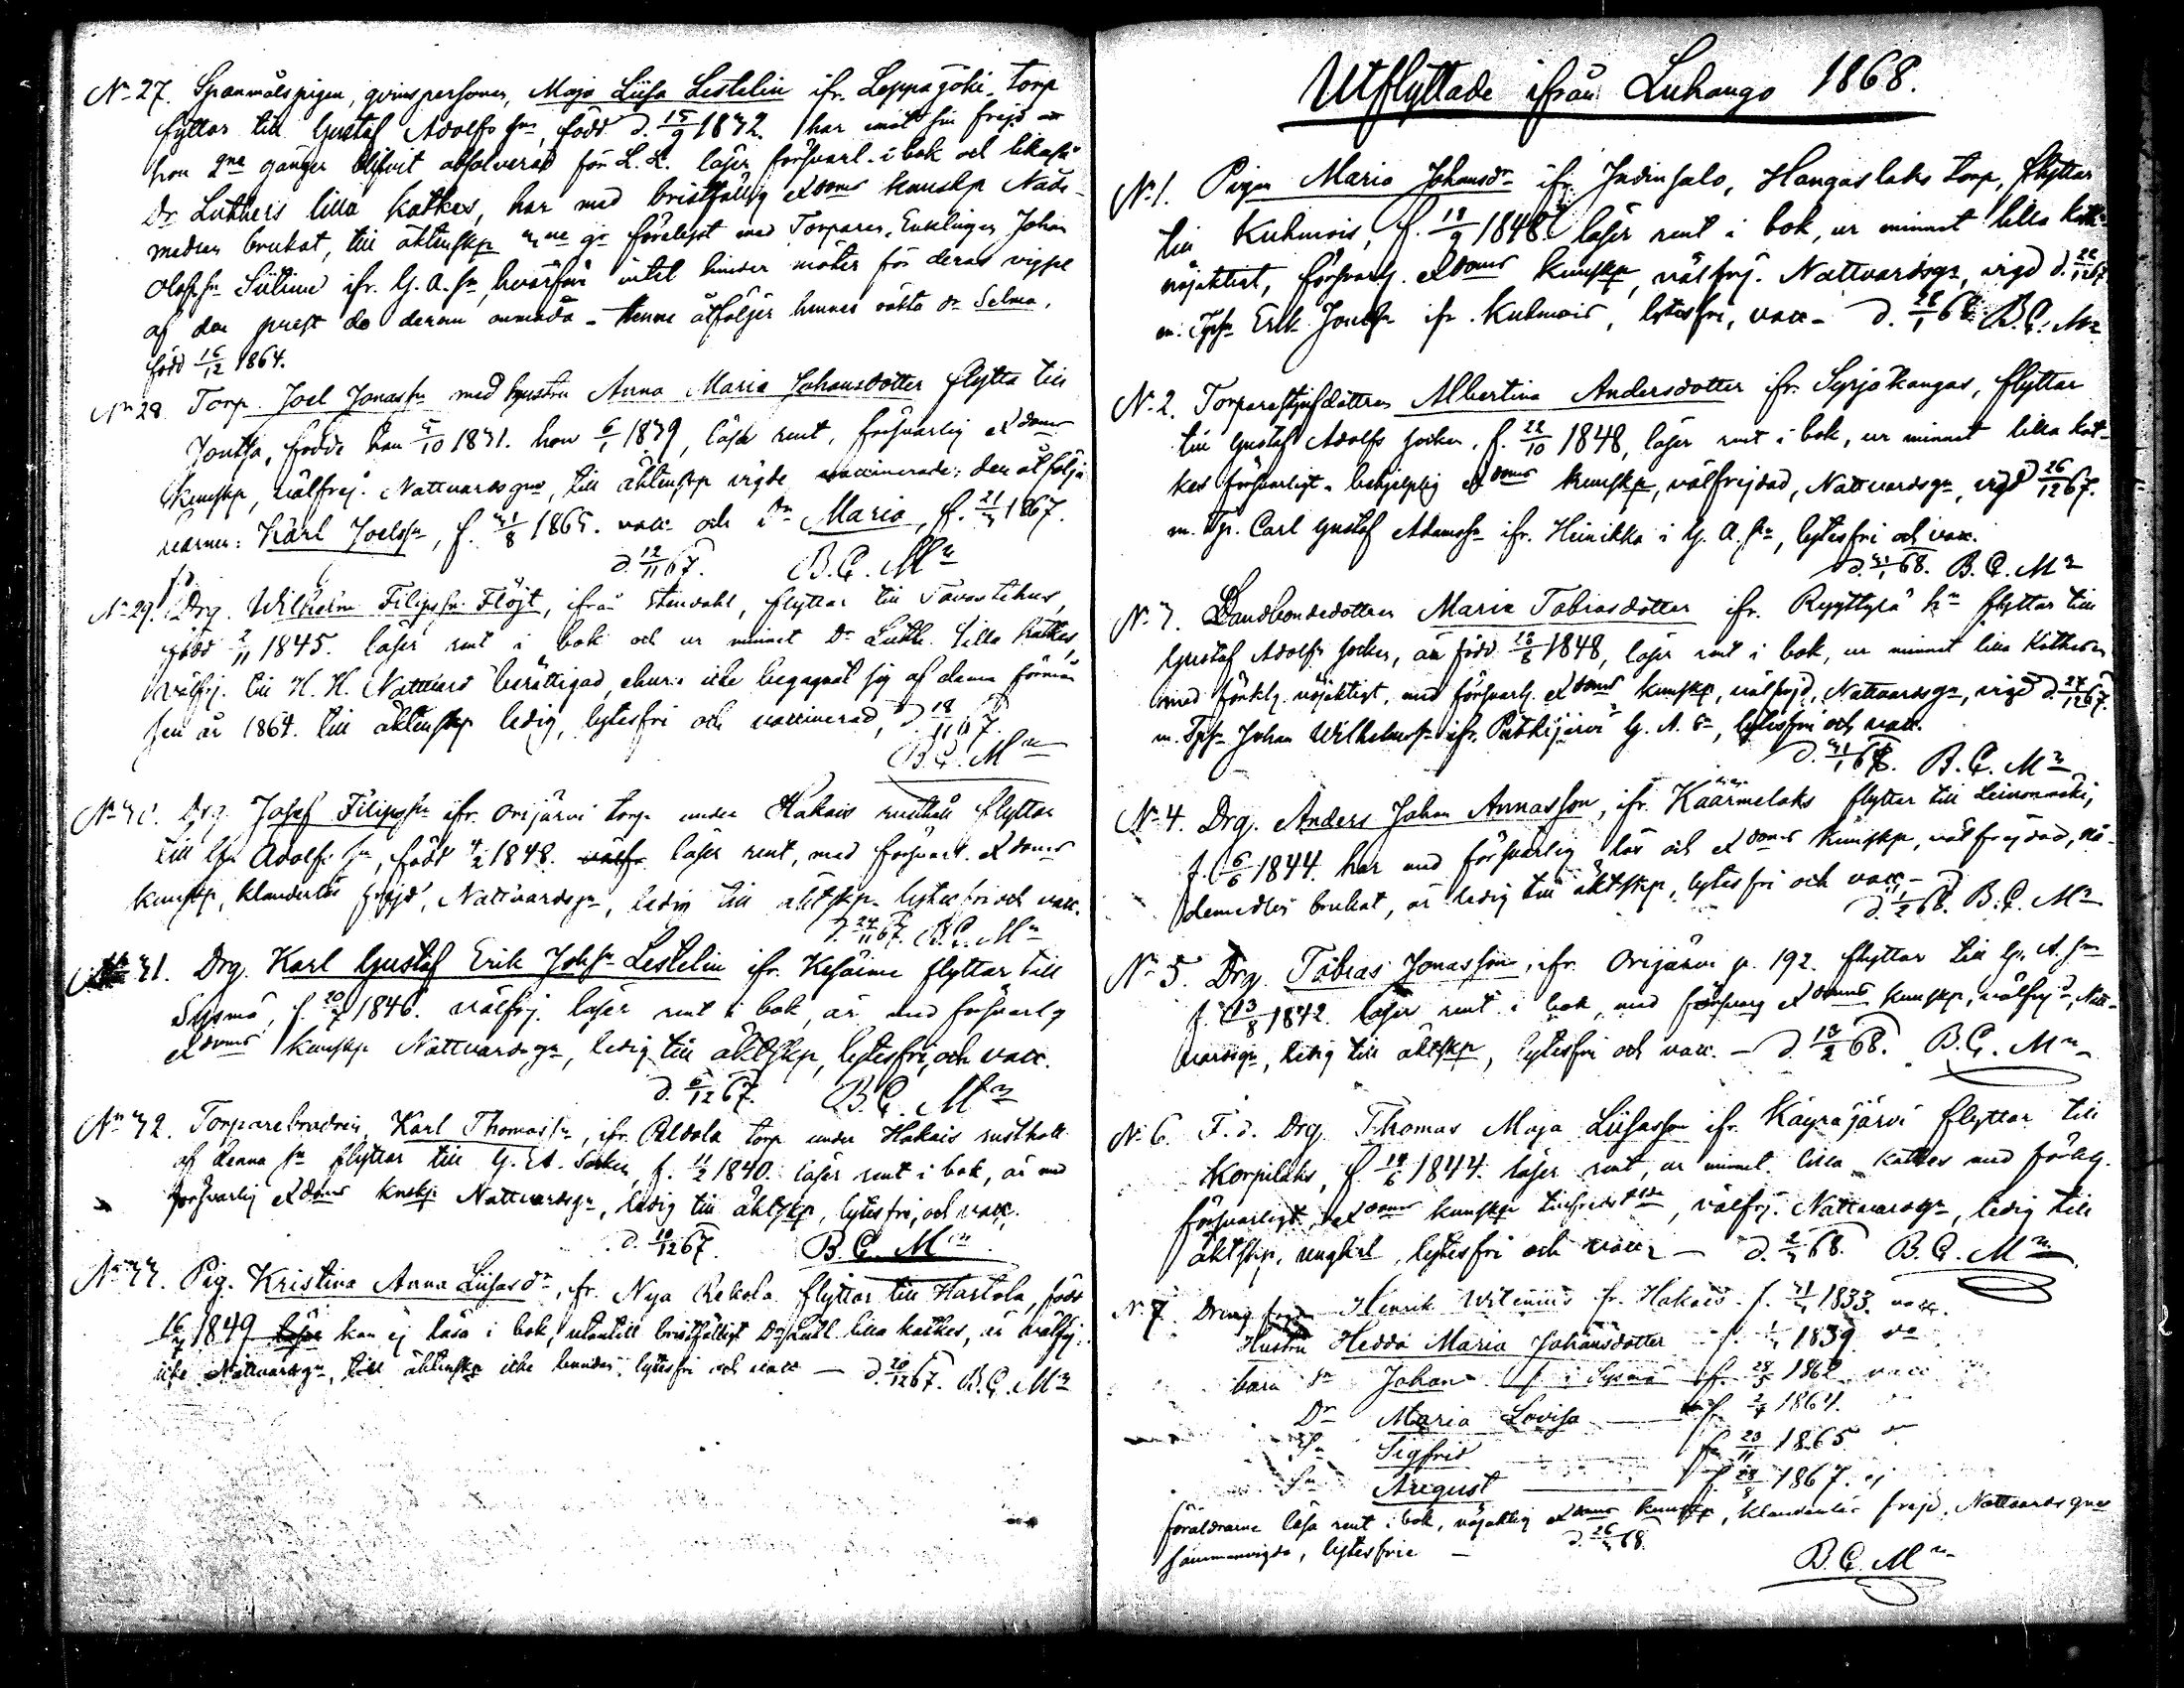 No 27. Spanmålspigan, qvinspersonen, Maja Liisa Lestelin ifr. Leppäjoki torp
flyttar till Gustaf Adolfs sn, född d. 15/9 1832. har emot sin frejd att
hon 2ne gånger blifvit absolverad för L. L. läser försvarl. i bok och likaså
Dr Luthers lilla katkes, har med bristfällig chrdoms kunskp Nåde-
medlen brukat, till äktenskp 3ne gr förelyst med Torparen, Enklingen Johan
Olofssn Siitime ifr. G. A. sn, hvarför intet hinder möter för deras vigsel
af den prest de derom anmoda - Henne åtföljer hennes oäkta dr Selma,
född 16/12 1864.
No 28. Torp. Joel Jonassn med hustru Anna Maria Johansdotter flytta till
Joutsa, födde han 5/10 1831. hon 6/1 1839, läsa rent, försvarlig chrdoms
kunskp, välfrej. Nattvardsgne, till äktenskp vigde vaccinerade: dem åtfölja
barnen: Karl Joelssn, f. 31/8 1865. vacc och dr Maria, f. 21/3 1867.
d. 12/11 67. B. G. Mn
No 29. Drg. Wilhelm Filipssn Flöjt, ifrån Stendahl, flyttar till Tavastehus,
född 2/11 1845. läser rent i bok och ur minnet Dr Luth. lilla katkes,
välfrj. till H. H. Nattvard berättigad, ehuru icke begagnat sig af denna förmån
sen år 1864. till äktenskp ledig, lytesfri och vaccinerad, d 18/11 67.
B. G. Mn
No 30. Drg. Josef Filipssn ifr. Orijärvi torp under Hakais rusthåll flyttar
till Gu Adolfs sn, född 4/2 1848. välfr läser rent, med försvarl. chrdoms
kunskp, klanderlös frejd, Nattvardsgn, ledig till äktskp. lytesfri och vacc.
d. 24/11 67. B. G. Mn
No 31. Drg. Karl Gustaf Erik Johsn Lestelin ifr. Kesäime flyttar till
Sysmä, f. 20/7 1846. välfrj. läser rent i bok, är med försvarlg
chrdoms kunskp Nattvardsgn, ledig till äktskp, lytesfri, och vacc.
d. 6/12 67. B. G. Mn
No 32. Torparebrodren, Karl Thomassn, ifr. Peldola torp under Hakais rusthåll
af denna sn flyttar till G. A. Socken, f. 11/2 1840. läser rent i bok, är med
försvarlig chrdoms knskp Nattvardsgn, ledig till äktskp, lytesfri, och vacc.
d. 10/12 67. B. G. Mn
No 33. Pig. Kristina Anna Liisasdr, ifr. Nya Rekola flyttar till Hartola, född
16/7 1849 läser kan ej läsa i bok, utantill bristfälligt Dr Luth. lilla katkes, är välfrj.
icke Nattvardsgn, till äktenskp icke bunden, lytesfri och vacc - d. 20/12 67. B. G. Mn
Utflyttade ifrån Luhango 1868.
No 1. Pigan Maria Johansdr ifr. Judinsalo, Hangaslaks torp, flyttar
till Kuhmois, f. 18/9 1848. läser rent i bok, ur minnet lilla katk-
nöjaktigt, försvarlg. chrdoms kunskp, välfrj. Nattvardsgn, vigd d. 22/12 67
m. Tpsn Erik Joelssn ifr. Kuhmois, lytesfri, vacc - d. 28/1 68 B. G. Mn
No 2. Torparestjufdottren Albertina Andersdotter ifr. Syrjäkangas, flyttar
till Gustaf Adolfs socken, f. 22/10 1848, läser rent i bok, ur minnet lilla kat-
kes försvarligt - behjelplig chrdoms kunskp, välfrejdad, Nattvardsgn, vigd 26/12 67.
m. Tp. Carl Gustaf Adamssn ifr. Heinikka i G. A. sn, lytesfri och vacc.
d. 31/1 68. B. G. Mn
No 3. Landbondedottren Maria Tobiasdotter ifr. Ryyttyrä hn flyttar till
Gustaf Adolfs socken, är född 23/6 1848, läser rent i bok, ur minnet lilla Katkesen
med förklg. nöjaktigt, med försvarlg. chrdoms kunskp, välfrejd, Nattvardsgn, vigd d. 27/12 67.
m. Tpsn Johan Wilhelmssn ifr. Putkijärvi G. A. Sn, lytesfri och vacc.
d. 31/1 68. B. G. Mn
No 4. Drg. Anders Johan Annasson, ifr. Käärmelaks flyttar till Leivonmäki,
f. 6/6 1844. har med försvarlig läs och chrdoms kunskp, välfrejdad, nå-
demedlen brukat, är ledig till äktskp, lytesfri och vacc -
d. 11/2 68. B. G. Mn
No 5. Drg. Tobias Jonasson, ifr. Orijärvi p. 192. flyttar till G. A. sn
f. 13/8 1842. läser rent i bok, med försvarlg chrdoms kunskp, välfrejd, Natt-
vardsgn, ledig till äktskp, lytesfri och vacc. - d. 18/2 68. B. G. Mn
No 6. F. d. Drg. Thomas Maja Liisasson ifr. Käyräjärvi flyttar till
Korpilaks, f. 18/6 1844. läser rent, ur minnet lilla katkes med förklg.
försvarligt, chrdoms kunskp, välfrj. Nattvardsgn, ledig till
äktskp, ungkarl, lytesfri och vacc - d. 2/3 68. B. G. Mn
No 7. Dreng Henrik Witenius fr. Hakais f. 31/3 1833. vacc.
Hustru Hedda Maria Johansdotter f. 1/3 1839 do
barn Sn Johan f. i Sysmä f. 28/5 1862 vacc
Dr Maria Lovisa f. 2/7 1864.
Sn Sigfrid f. 20/11 1865
Sn August f. 28/8 1867. ej
föräldrarne läsa rent i bok, nöjaktig chrdoms kunskp, klanderlös frejd, Nattvardsgner
sammanvigda, lytesfrie - d. 26/3 68.
B. G. Mn